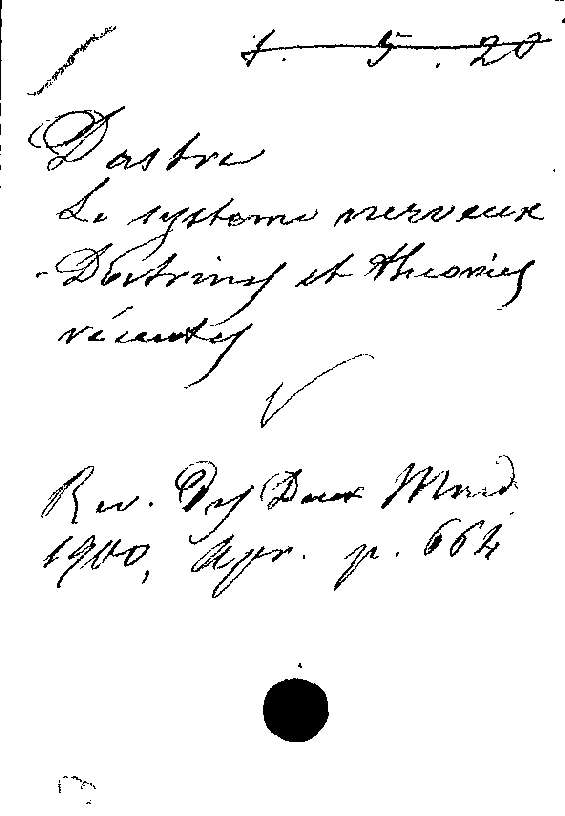 1. 5. 20
Dastre
Le systeme nerveux
Doctrines et theories
récentes
Rev. des Deux Mond.
1900, Apr. p. 664